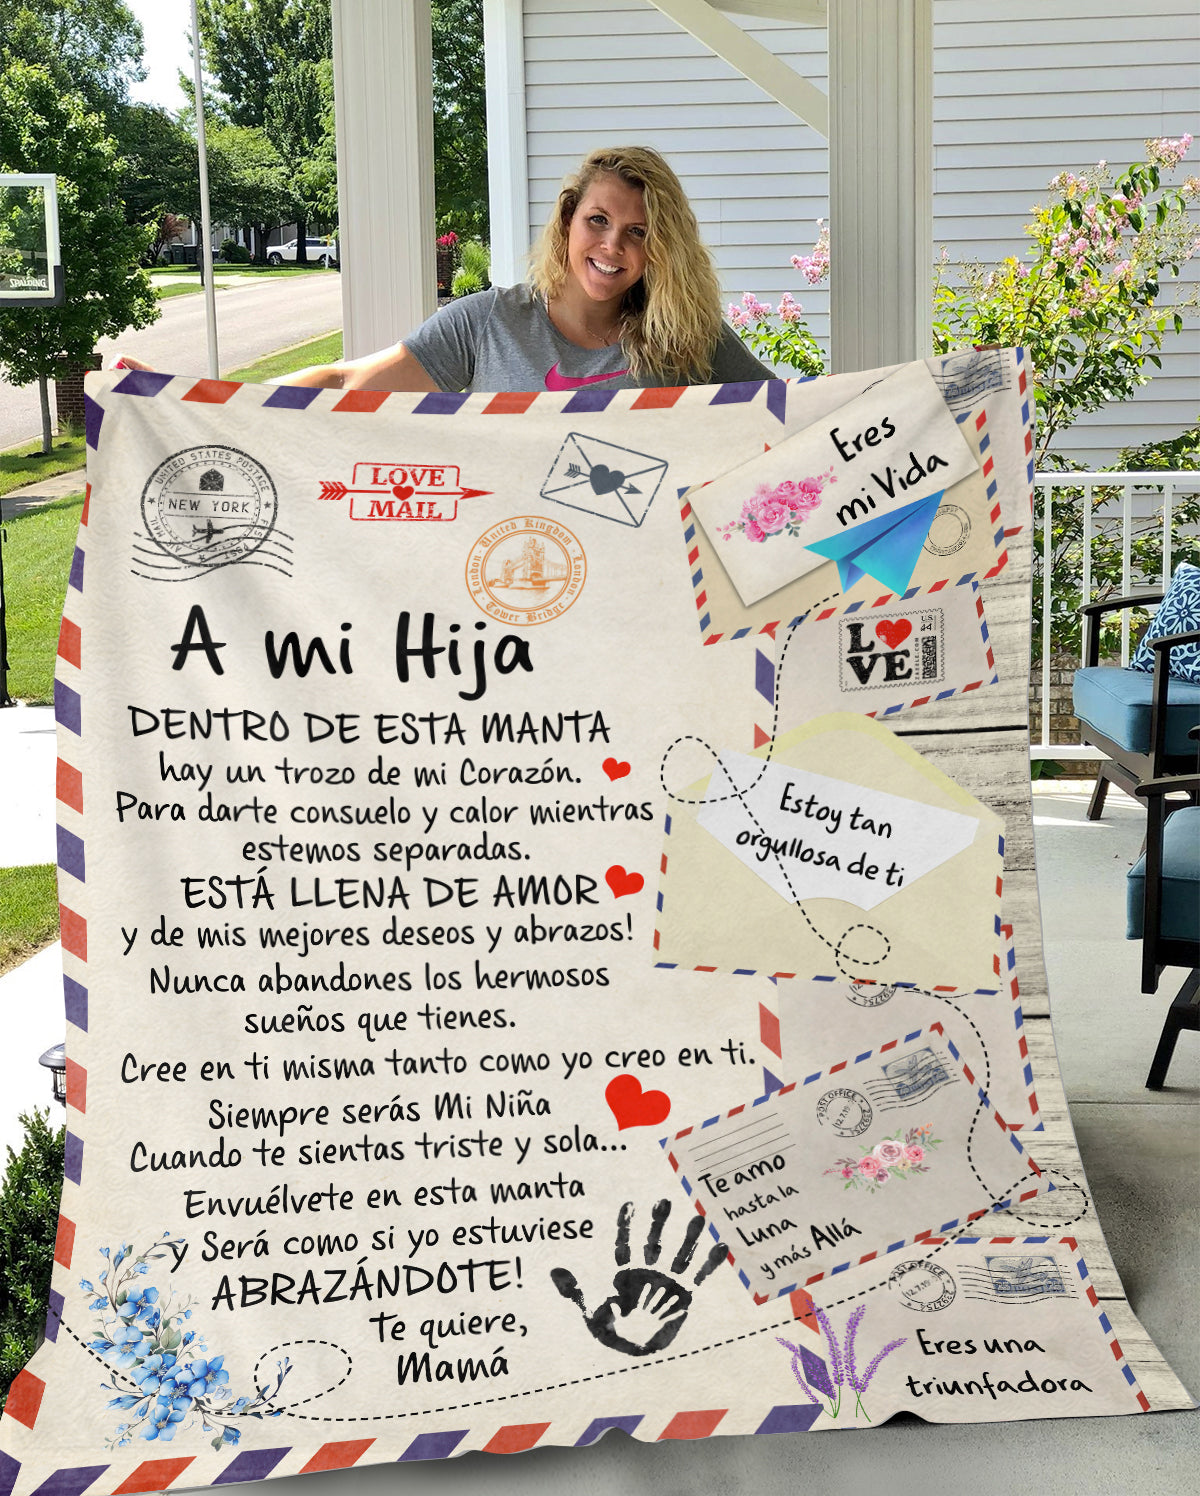 SPALDING
UNITED STATES POSTAGE
NEW YORK
AIR MAIL
LOVE
MAIL
United Kingdom
London
London
Tower Bridge
Eres
mi Vida
LOVE
U.S.
44
A mi Hija
DENTRO DE ESTA MANTA
hay un trozo de mi Corazón.
Para darte consuelo y calor mientras
estemos separadas.
ESTÁ LLENA DE AMOR
y de mis mejores deseos y abrazos!
Nunca abandones los hermosos
sueños que tienes.
Cree en ti misma tanto como yo creo en ti.
Siempre serás Mi Niña
Cuando te sientas triste y sola...
Envuélvete en esta manta
y Será como si yo estuviese
ABRAZÁNDOTE!
Te quiere,
Mamá
Estoy tan
orgullosa de ti
292754
POST OFFICE
12.7.19
292754
Te amo
hasta la
Luna
y más Allá
POST OFFICE
12.7.19
292754
Eres una
triunfadora